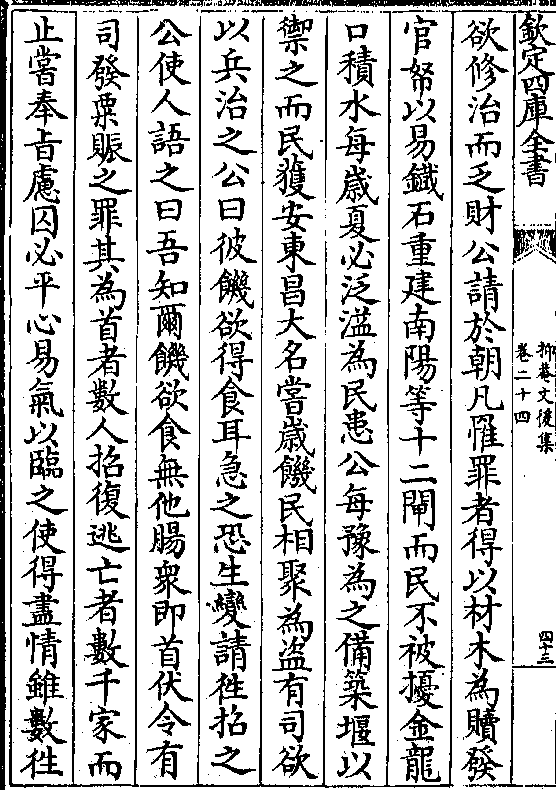 欽定四庫全書
抑菴文後集
卷二十四
四十三
欲修治而乏財公請於朝凡罹罪者得以材木為贖發
官帑以易鐵石重建南陽等十二閘而民不被擾金龍
口積水每歳夏必泛溢為民患公每豫為之備築堰以
禦之而民獲安東昌大名嘗歳饑民相聚為盜有司欲
以兵治之公曰彼饑欲得食耳急之恐生變請徃招之
公使人語之曰吾知爾饑欲食無他腸衆即首伏令有
司發粟賑之罪其為首者數人招復逃亡者數千家而
止嘗奉㫖慮囚必平心易氣以臨之使得盡情雖數徃